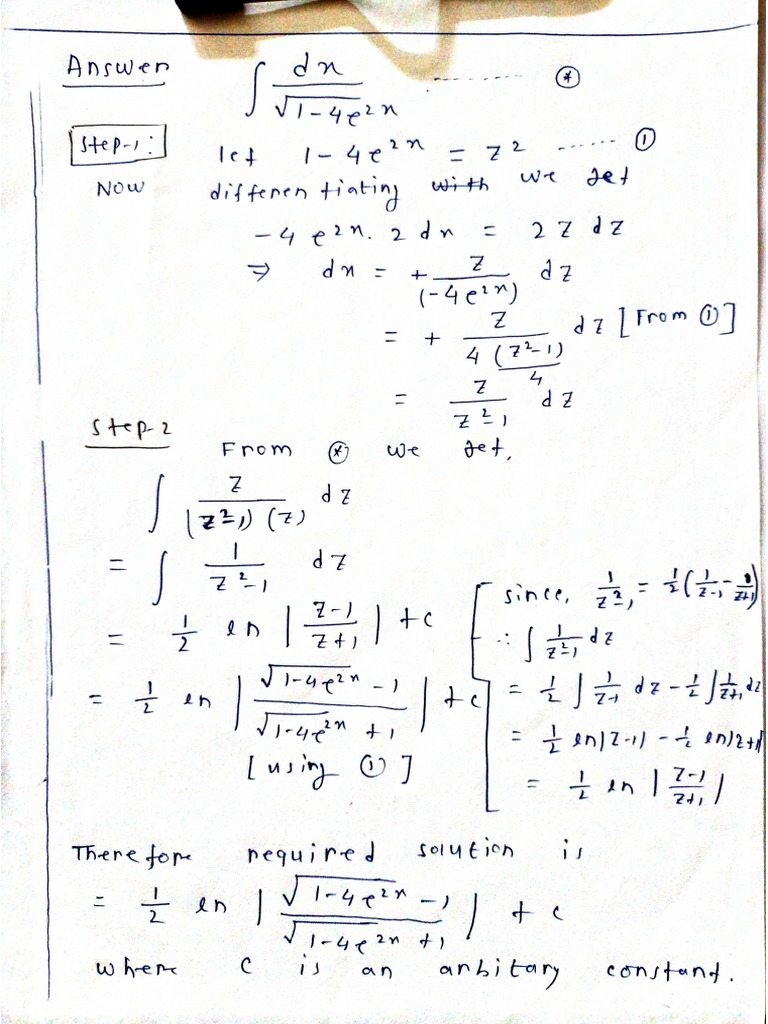 Answer ∫ dx / √(1-4e^{2x}) ........ (*)
Step-1: let 1-4e^{2x} = z² ...... (1)
Now differentiating we get
-4e^{2x}. 2dx = 2z dz
⇒ dx = + z/(-4e^{2x}) dz
= + z/(4 (z²-1)/4) dz [From (1)]
= z/(z²-1) dz
Step-2
From (*) we get,
∫ z/((z²-1)(z)) dz
= ∫ 1/(z²-1) dz
= 1/2 ln |(z-1)/(z+1)| + c
= 1/2 ln |(√(1-4e^{2x}) -1)/(√(1-4e^{2x}) +1)| + c
[using (1)]
[since, 1/(z²-1) = 1/2 (1/(z-1) - 1/(z+1))
∴ ∫ 1/(z²-1) dz
= 1/2 ∫ 1/(z-1) dz - 1/2 ∫ 1/(z+1) dz
= 1/2 ln|z-1| - 1/2 ln|z+1|
= 1/2 ln |(z-1)/(z+1)|
Therefore required solution is
= 1/2 ln |(√(1-4e^{2x}) -1)/(√(1-4e^{2x}) +1)| + c
where c is an arbitary constant.